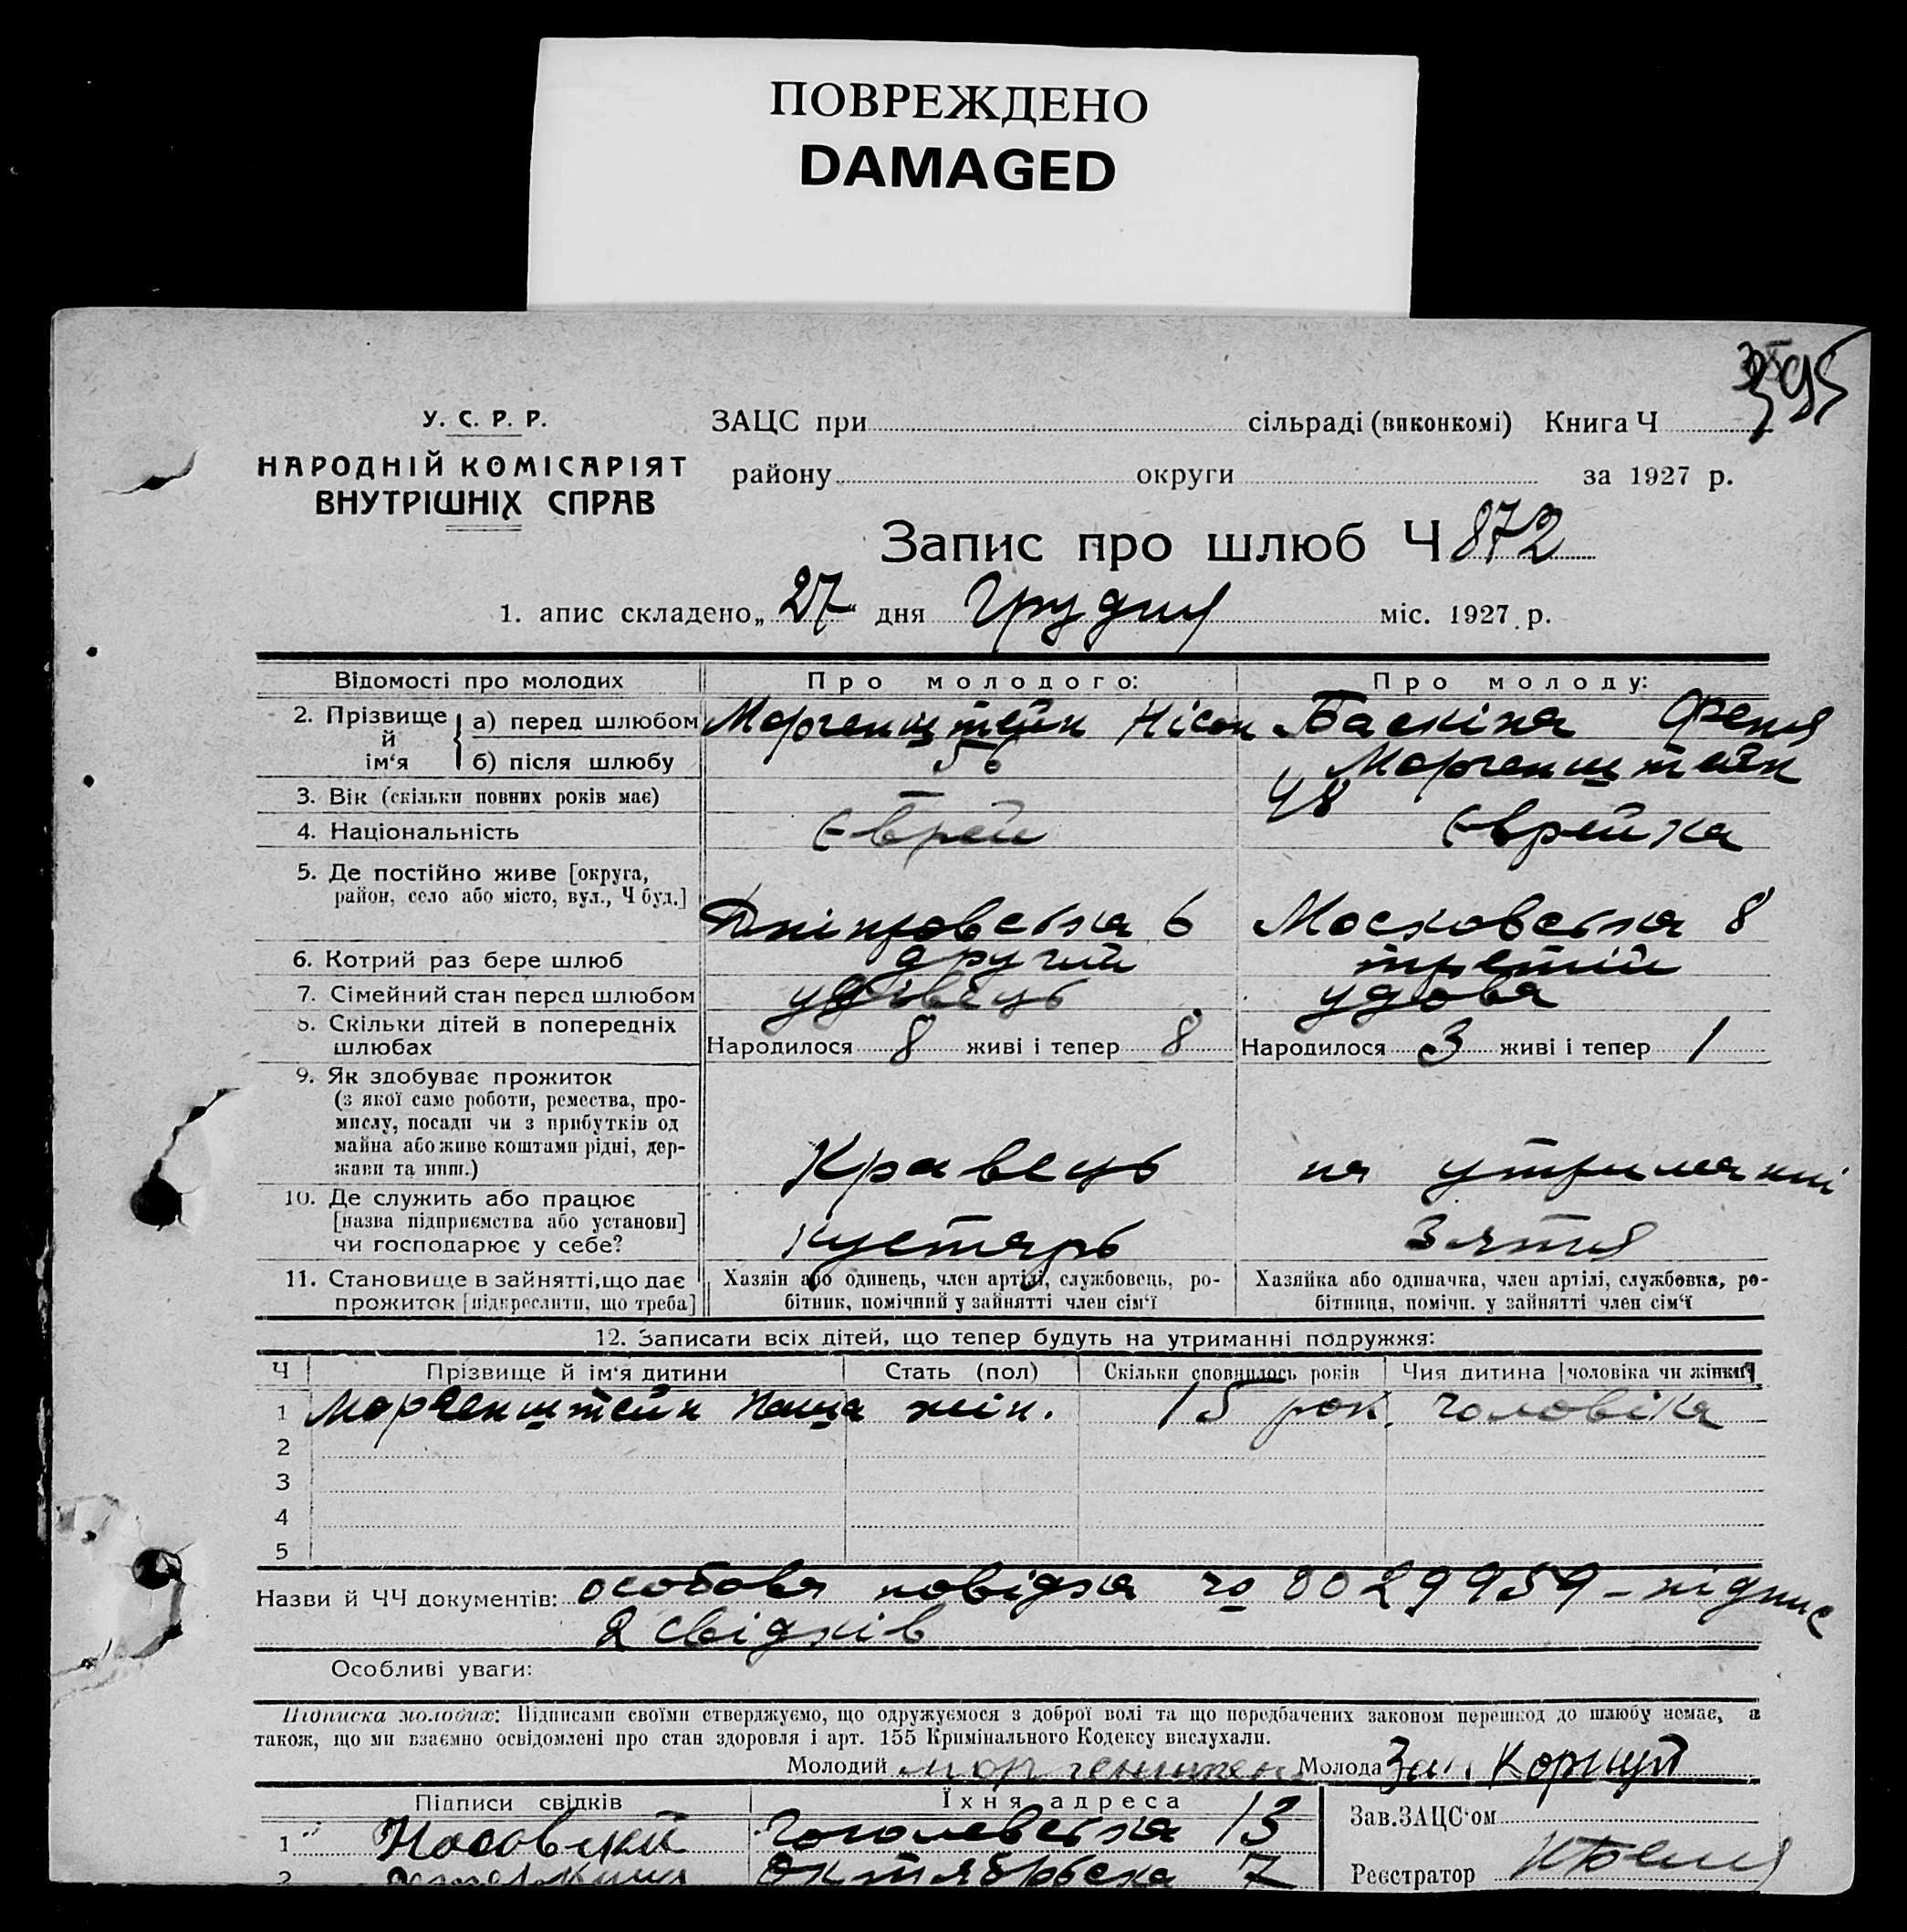 ПОВРЕЖДЕНО
DAMAGED
395
У. С. Р. Р.
НАРОДНІЙ КОМІСАРІЯТ
ВНУТРІШНІХ СПРАВ
ЗАЦС при сільраді (виконкомі) Книга Ч
району округи за 1927 р.
Запис про шлюб Ч 872
1. апис складено „ 27 дня Грудня міс. 1927 р.
Відомості про молодих Про молодого: Про молоду:
2. Прізвище й ім'я
а) перед шлюбом Моргенштейн Нісон Баскіна Феня
б) після шлюбу Моргенштейн
3. Вік (скільки повних років має) 56 48
4. Національність Єврей Єврейка
5. Де постійно живе [округа,
район, село або місто, вул., Ч буд.] Дніпровська 6 Московська 8
6. Котрий раз бере шлюб другий третій
7. Сімейний стан перед шлюбом удівець удова
8. Скільки дітей в попередніх
шлюбах Народилося 8 живі і тепер 8 Народилося 3 живі і тепер 1
9. Як здобуває прожиток
(з якої саме роботи, ремества, про-
мислу, посади чи з прибутків од
майна або живе коштами рідні, дер-
жави та инш.) Кравець на утриманні
10. Де служить або працює
[назва підприємства або установи]
чи господарює у себе? кустарь Зятя
11. Становище в зайнятті, що дає
прожиток [підкреслити, що треба]
Хазяін або одинець, член артілі, службовець, ро-
бітник, помічний у зайнятті член сім'ї
Хазяйка або одиначка, член артілі, службовка, ро-
бітниця, помічн. у зайнятті член сім'ї
12. Записати всіх дітей, що тепер будуть на утриманні подружжя:
Ч Прізвище й ім'я дитини Стать (пол) Скільки сповнилось років Чия дитина [чоловіка чи жінки]
1 Моргенштейн жін. 15 рок. Чоловіка
2
3
4
5
Назви й ЧЧ документів: особова повідка 0029959 – підпис
2 свідків
Особливі уваги:
Підписка молодих: Підписами своїми стверджуємо, що одружуємося з доброї волі та що передбачених законом перешкод до шлюбу немає, а
також, що ми взаємно освідомлені про стан здоровля і арт. 155 Кримінального Кодексу вислухали.
Молодий Моргенштейн Молода
Підписи свідків Їхня адреса
1 Носовский Гоголевська 13
2 Октябрьска 7
Зав.ЗАЦС'ом
Реєстратор